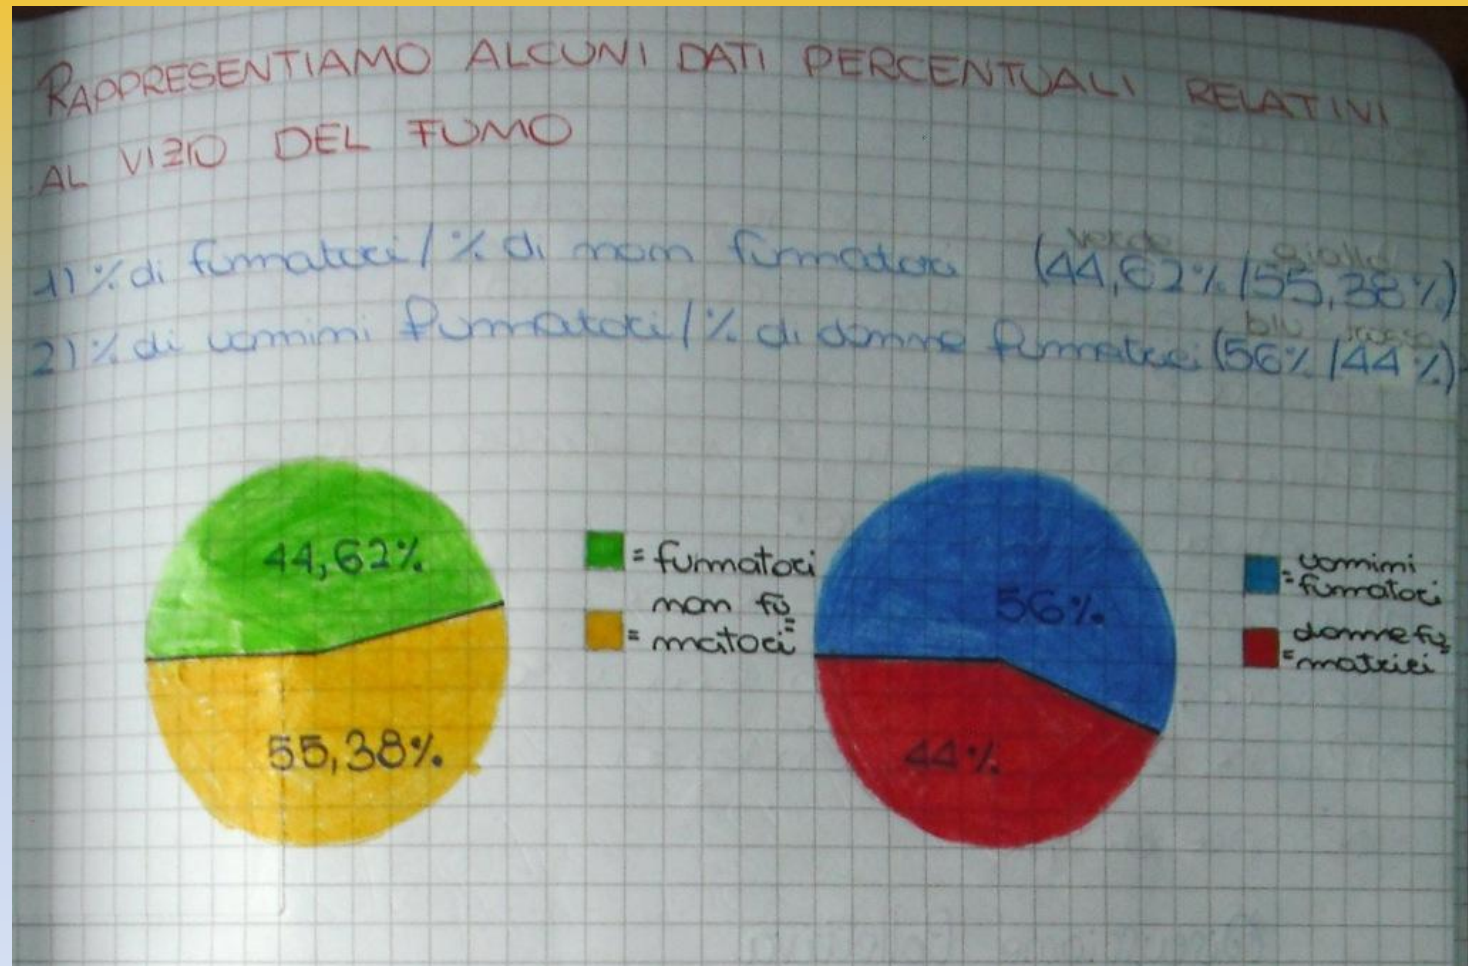 RAPPRESENTIAMO ALCUNI DATI PERCENTUALI RELATIVI
AL VIZIO DEL FUMO
verde giallo
1) % di fumatori / % di non fumatori (44,62% / 55,38%)
blu rosso
2) % di uomini fumatori / % di donne fumatrici (56% / 44%)
44,62%
55,38%
= fumatori
non fu=
= matori
56%
44%
uomini
= fumatori
donne fu=
= matrici